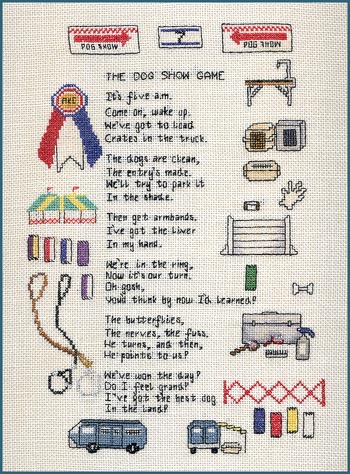 DOG SHOW
?
DOG SHOW
THE DOG SHOW GAME
AKC
It's five a.m.
Come on, wake up.
We've got to load
Crates in the truck.
The dogs are clean,
The entry's made.
We'll try to park it
In the shade.
Then get armbands.
I've got the liver
In my hand.
We're in the ring,
Now it's our turn.
Oh gosh,
You'd think by now I'd learned!
The butterflies,
The nerves, the fuss.
He turns, and then,
He points to us!
We've won the day!
Do I feel grand?
I've got the best dog
In the land!